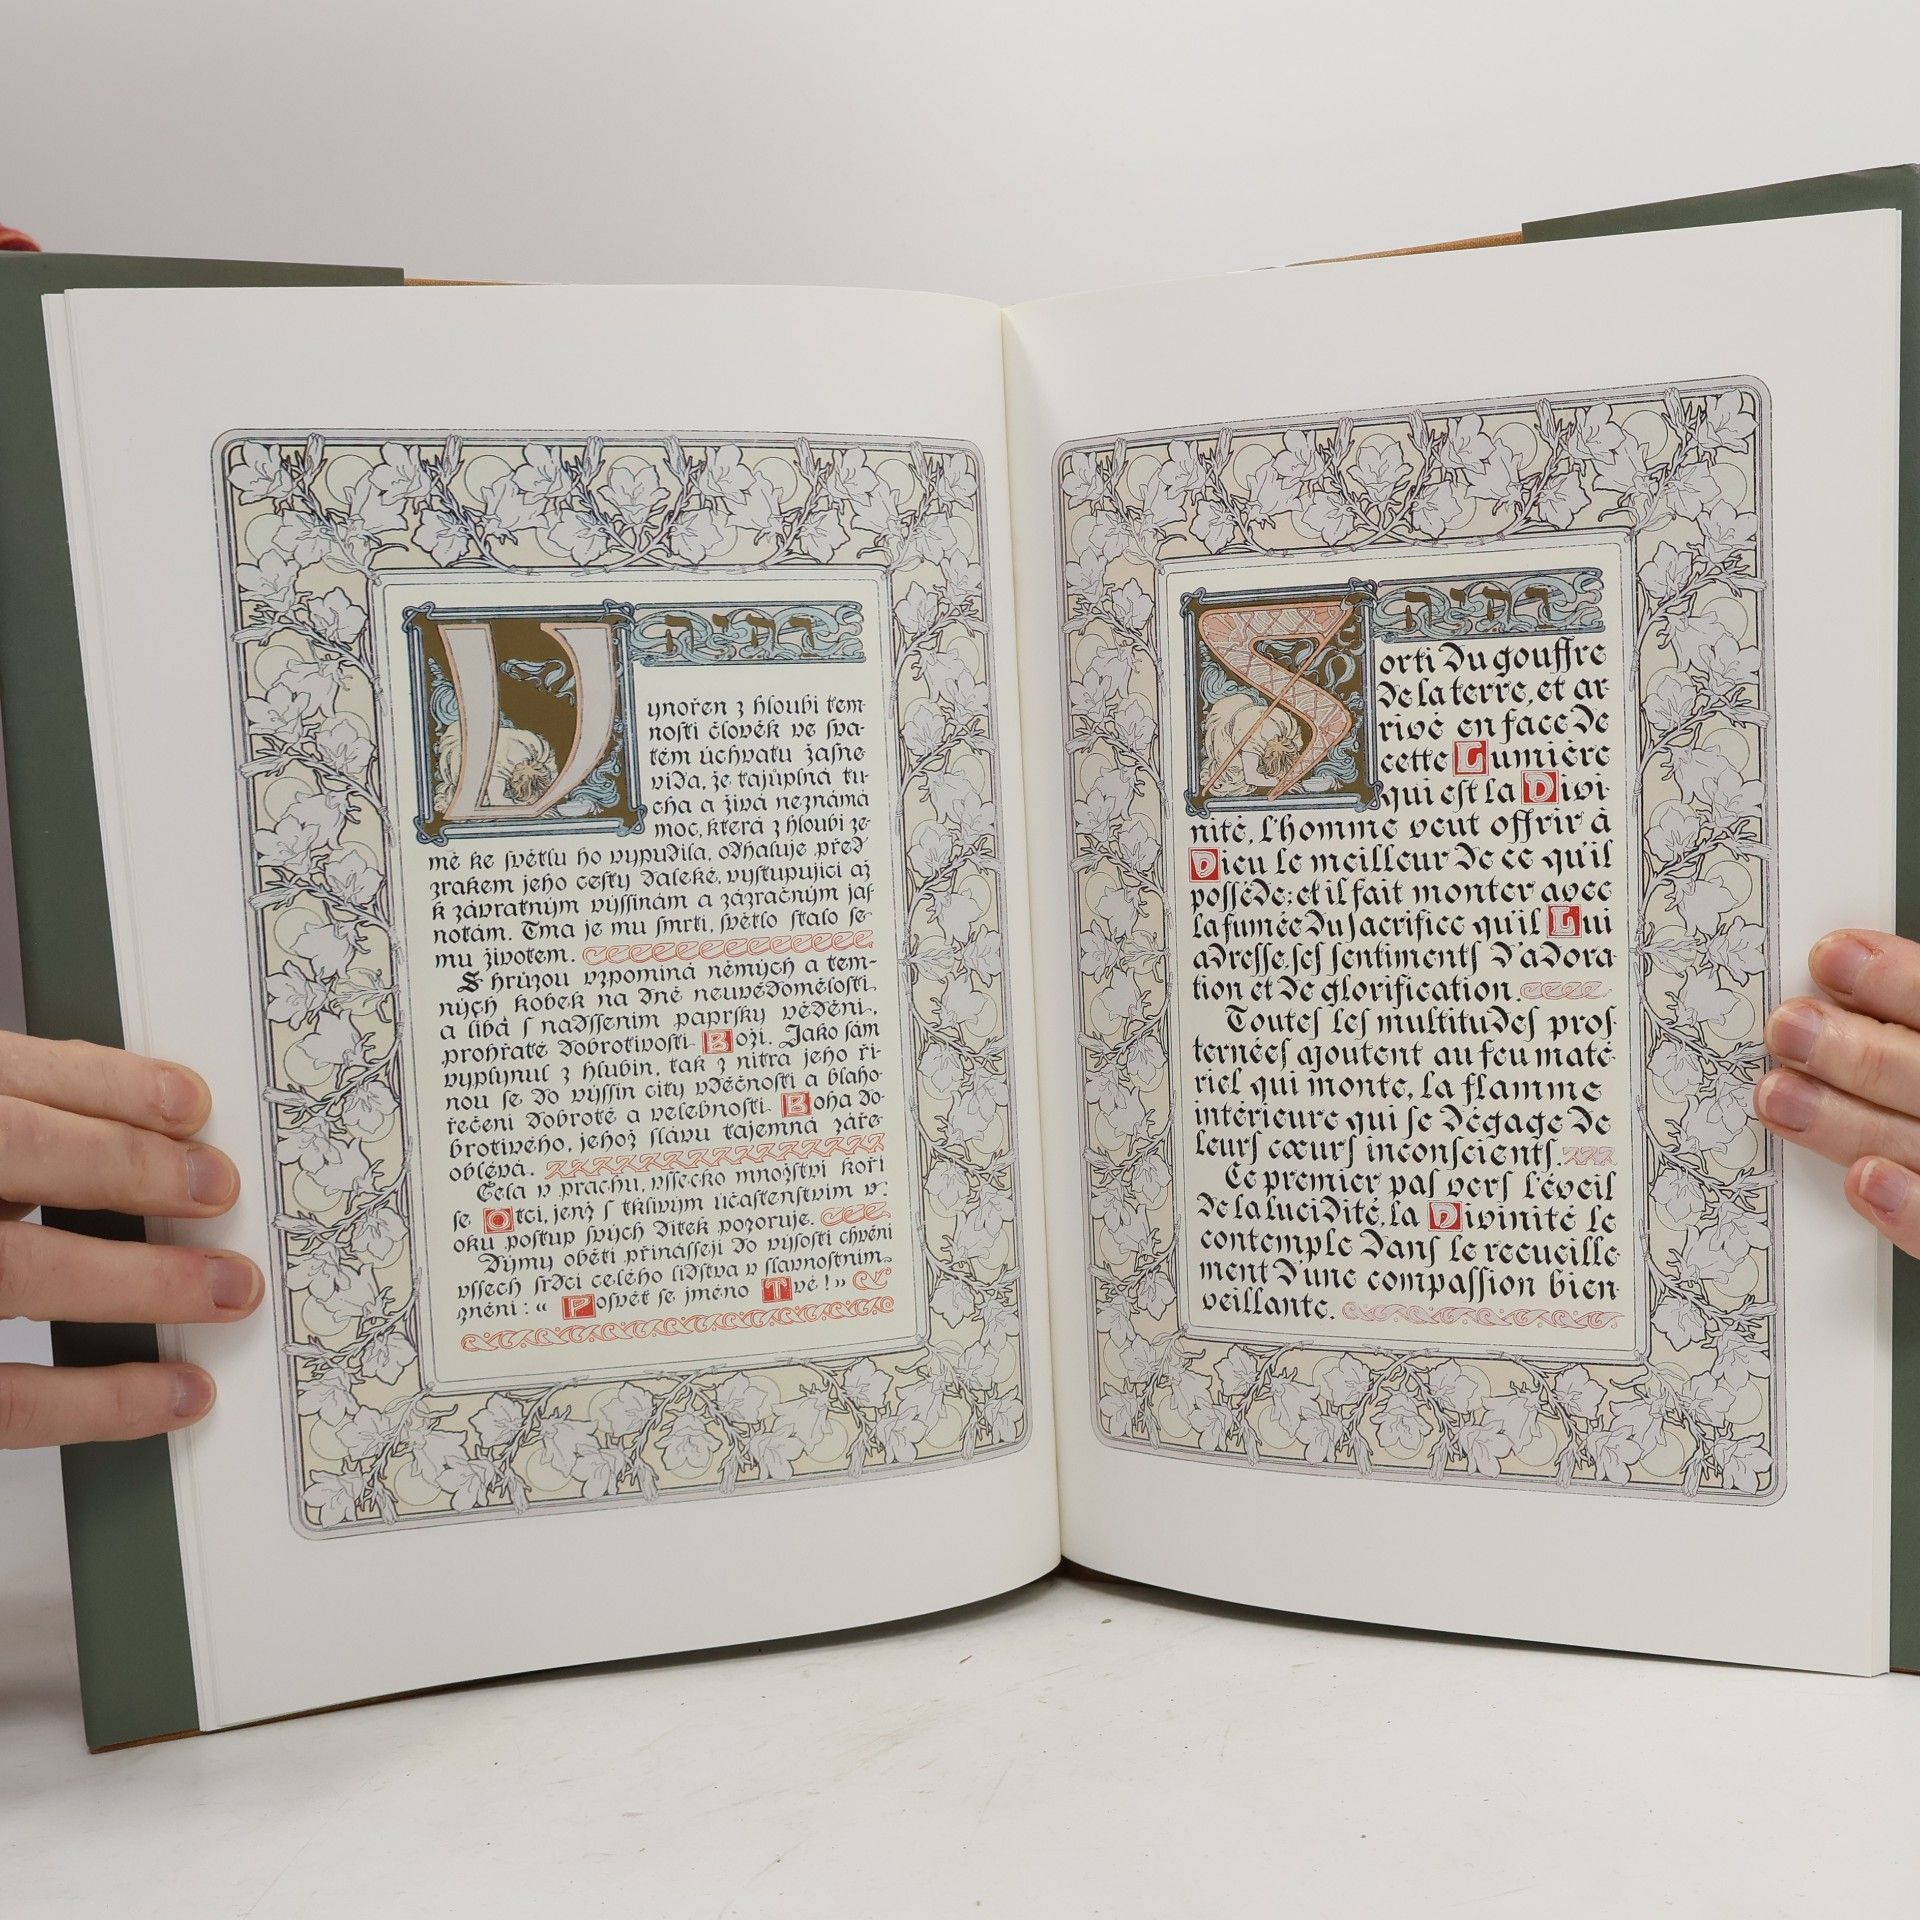 Vynořen z hloubi tem-
nosti člověk ve sva-
tém úchvatu žasne
vida, že tajůplná tu-
cha a živá neznámá
moc, která z hloubi ze-
mě ke světlu ho vypudila, odhaluje před
zrakem jeho cesty daleké, vystupující až
k závratným výssinám a zázračným jas-
notám. Tma je mu smrtí, světlo stalo se
mu životem.
S hrůzou vzpomíná němých a tem-
ných kobek na dně neuvědomělosti,
a líbá s nadssením paprsky vědění,
prohřáté dobrotivostí Boží. Jako sám
vyplynul z hlubin, tak z nitra jeho ří-
nou se do výssin city vděčnosti a blaho-
řečení dobrotě a velebnosti Boha do-
brotivého, jehož slávu tajemná záře
oblévá.
Čela v prachu, vssecko množství koří
se Otci, jenž s tklivým účastenstvím v
oku postup svých dítek pozoruje.
Dýmy oběti přinássejí do výsosti chvění
vssech srdcí celého lidstva v slavnostním
znění: « Posvěť se jméno Tvé ! »
יהוה
Sorti du gouffre
de la terre, et ar-
rivé en face de
cette Lumière
qui est la Divi-
nité, l'homme veut offrir à
Dieu le meilleur de ce qu'il
possède; et il fait monter avec
la fumée du sacrifice qu'il Lui
adresse, ses sentiments d'adora-
tion et de glorification.
Toutes les multitudes pros-
ternées ajoutent au feu maté-
riel qui monte, la flamme
intérieure qui se dégage de
leurs cœurs inconscients.
Ce premier pas vers l'éveil
de la lucidité, la Divinité le
contemple dans le recueille-
ment d'une compassion bien-
veillante.